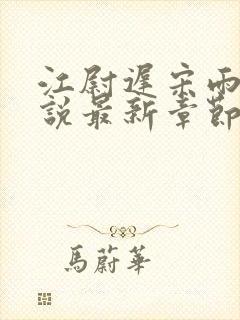 江尉遲宋雨
說最新章節
馬蔚華